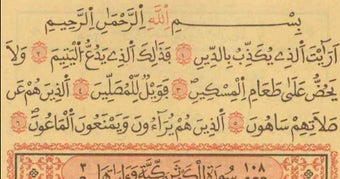 بِسْمِ اللَّهِ الرَّحْمَٰنِ الرَّحِيمِ
أَرَأَيْتَ الَّذِي يُكَذِّبُ بِالدِّينِ ١ فَذَٰلِكَ الَّذِي يَدُعُّ الْيَتِيمَ ٢ وَلَا
يَحُضُّ عَلَىٰ طَعَامِ الْمِسْكِينِ ٣ فَوَيْلٌ لِلْمُصَلِّينَ ٤ الَّذِينَ هُمْ عَنْ
صَلَاتِهِمْ سَاهُونَ ٥ الَّذِينَ هُمْ يُرَاءُونَ وَيَمْنَعُونَ الْمَاعُونَ ٦
١٠٨ سُورَةُ الْكَوْثَرِ مَكِّيَّةٌ وَآيَاتُهَا ٣